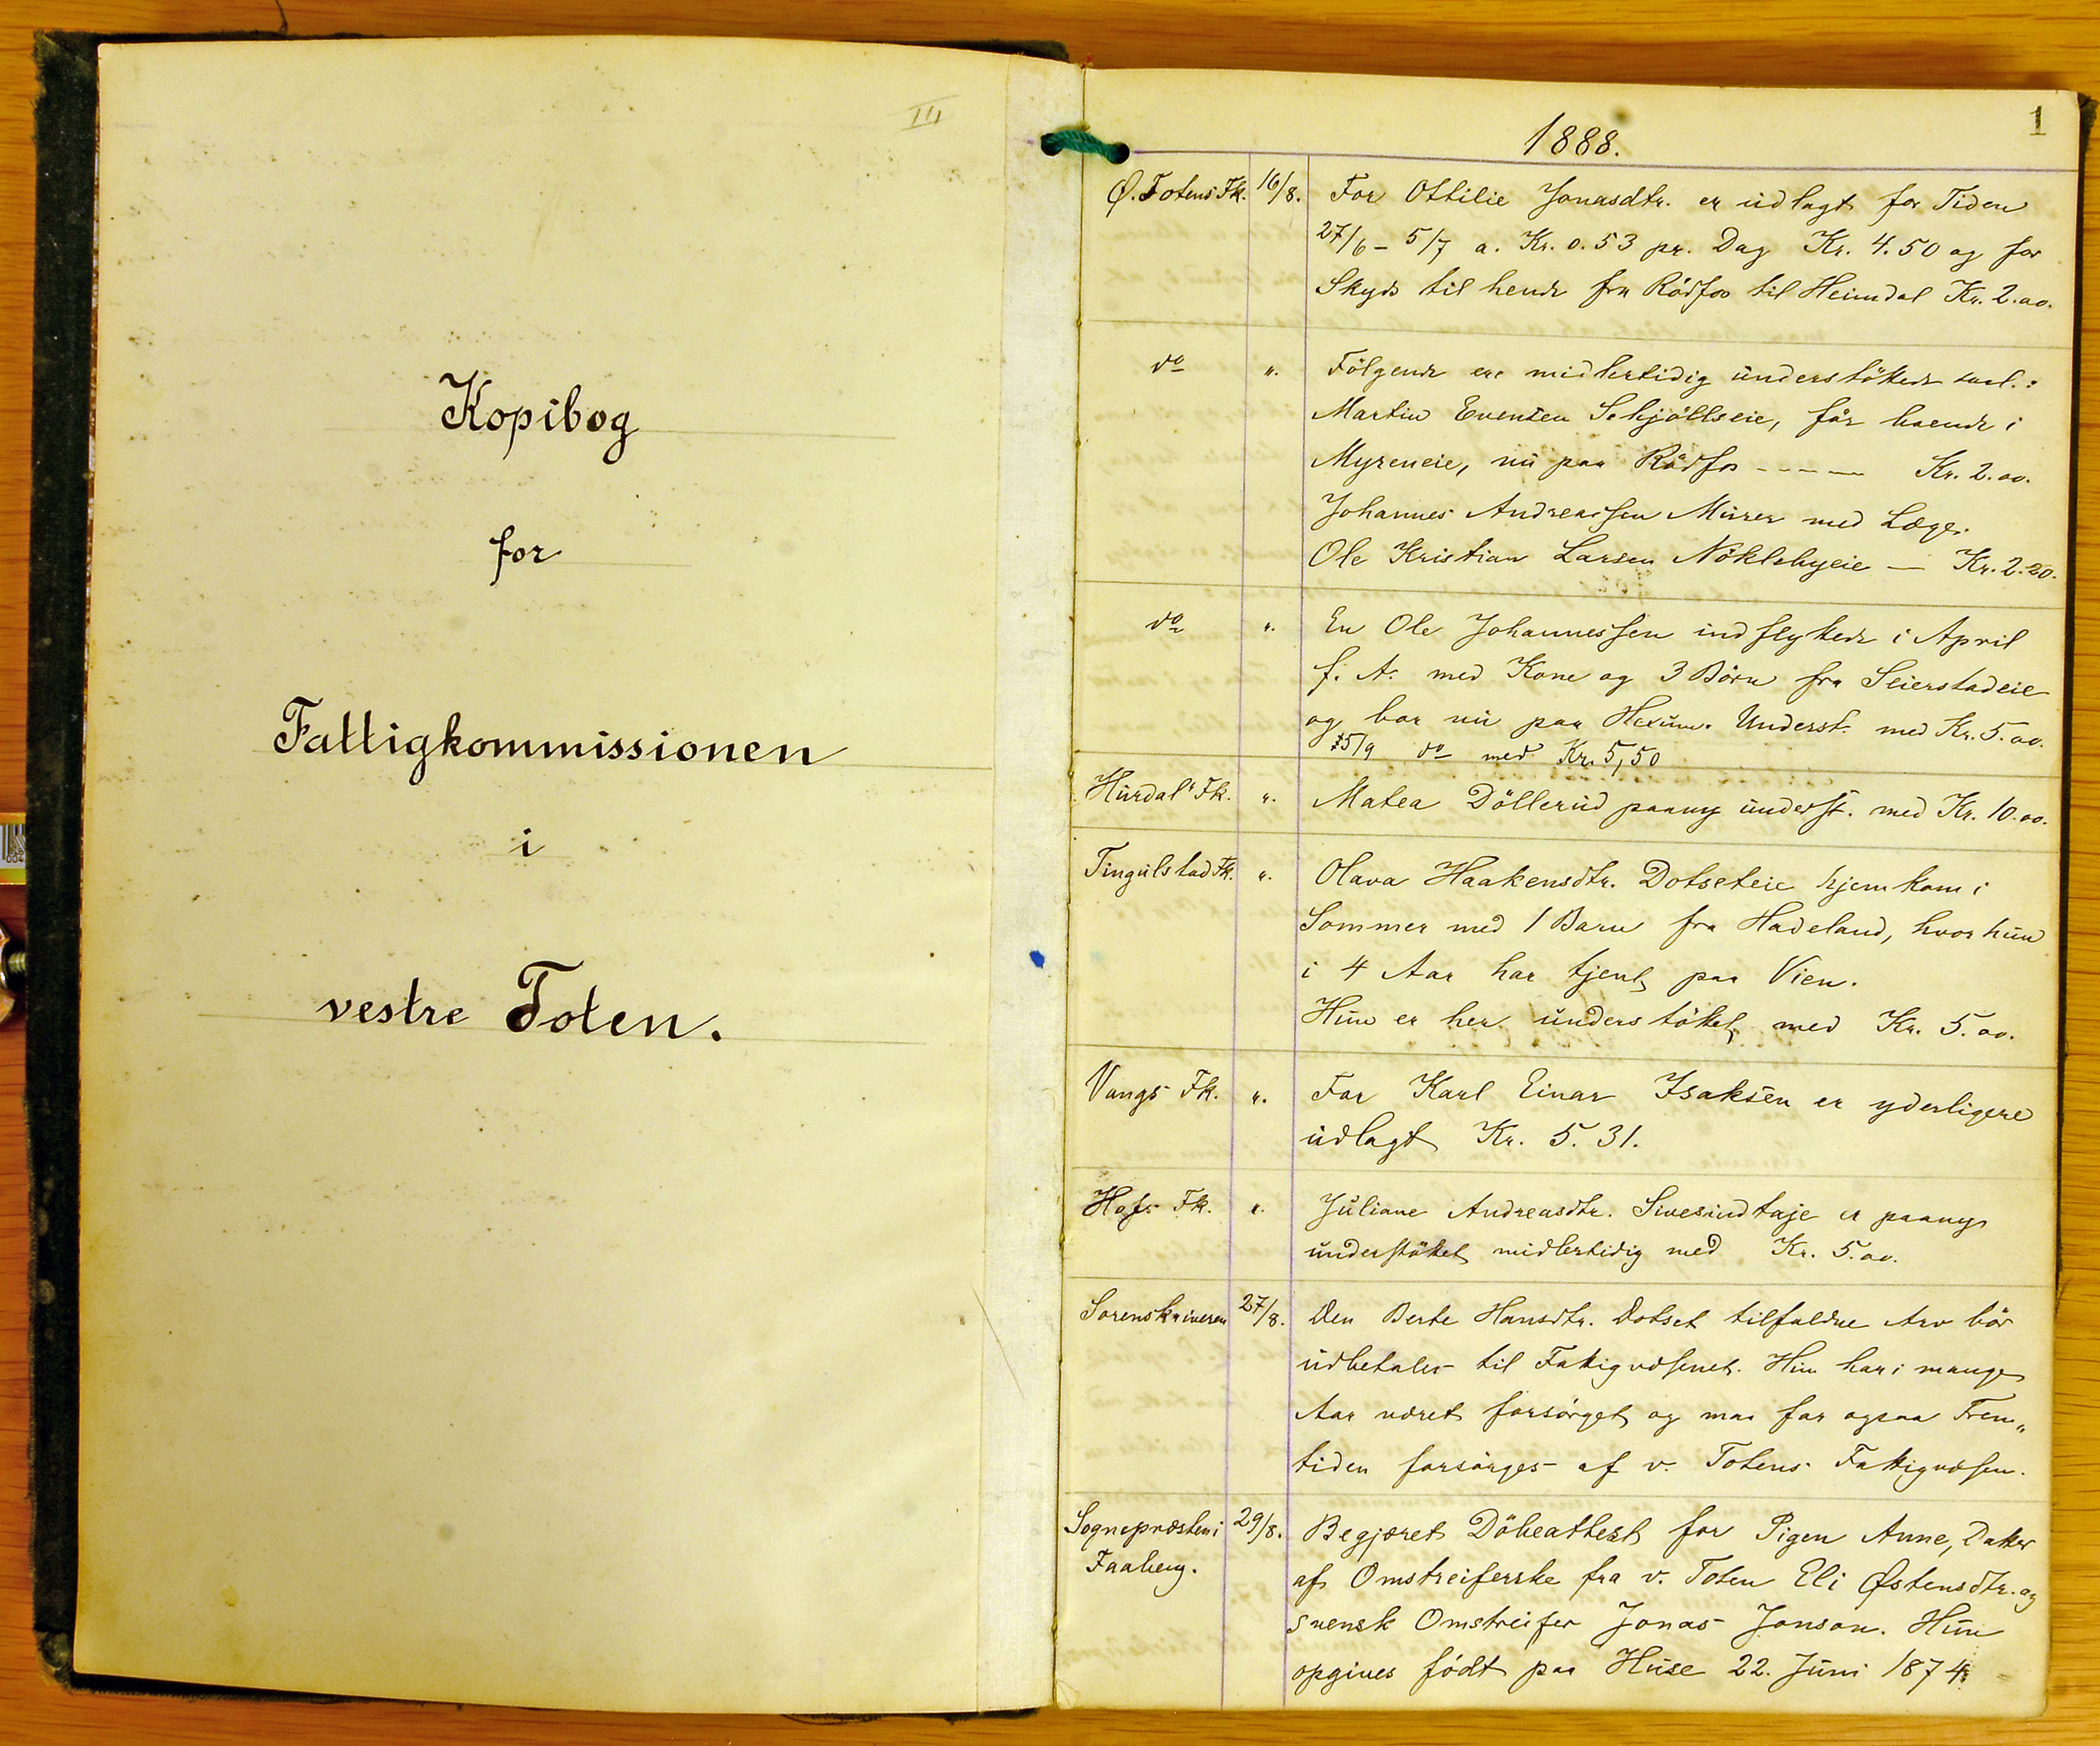 III
Kopibog
for
Fattigkommissionen
i
vestre Toten.
1
1888.
Ø. Totens Fk. 16/8. For Ottilie Jonasdtr. er udlagt for Tiden
27/6 - 5/7 a. Kr. 0.53 pr. Dag Kr. 4.50 og for
Skyds til hende fra Rödfos til Heimdal Kr. 2.00.
do ". Fölgende ere midlertidig understöttede saal.:
Martin Evensen Schjöllseie, för boende i
Myreneie, nu paa Rödfos ----- Kr. 2.00.
Johannes Andreassen Murer med Læge.
Ole Kristian Larsen Nöklebyeie — Kr. 2.20.
do ". En Ole Johannessen indflyttede i April
f. A. med Kone og 3 Börn fra Seierstadeie
og bor nu paa Hexum. Underst. med Kr. 5.00.
15/9 do med Kr. 5,50
Hurdals Fk. ". Matea Döllerud paany underst. med Kr. 10.00.
Tingulstad Fk. ". Olava Haakensdtr. Dotseteie hjemkom i
Sommer med 1 Barn fra Hadeland, hvor hun
i 4 Aar har tjent paa Vien.
Hun er her understöttet med Kr. 5.00.
Vangs Fk. ". For Karl Einar Isaksen er yderligere
udlagt Kr. 5.31.
Hofs Fk. ". Juliane Andreasdtr. Sivesindtaje er paany
understöttet midlertidig med Kr. 5.00.
Sorenskriveren 27/8. Den Berte Hansdtr. Dotset tilfaldne Arv bör
udbetales til Fattigvæsenet. Hun har i mange
Aar været forsörget og maa for ogsaa Frem„
tiden forsörges af v. Totens Fattigvæsen.
Sognepræsten i 29/8. Begjæret Döbeattest for Pigen Anne, Datter
Faaberg. af Omstreiferske fra v. Toten Eli Østensdtr. og
svensk Omstreifer Jonas Jonson. Hun
opgives födt paa Huse 22. Juni 1874.